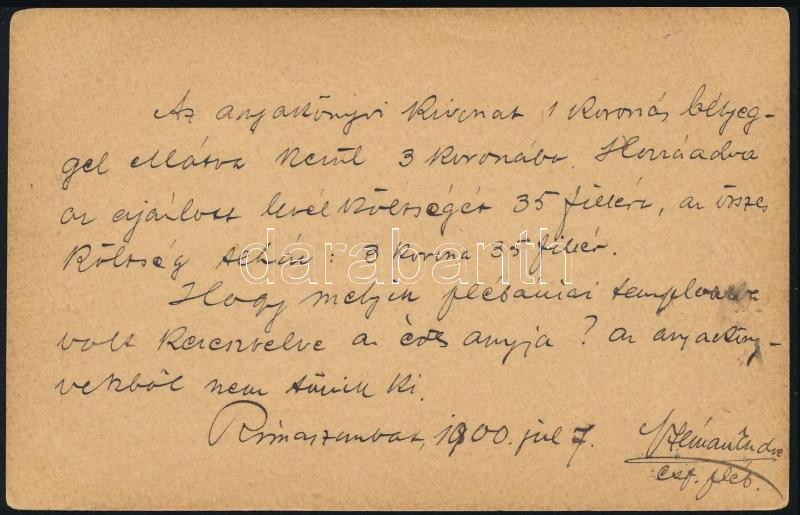 Az anyakönyvi kivonat 1 koronás bélyeg-
gel ellátva kerül 3 koronába. Hozzáadva
az ajánlott levél költségét 35 fillért, az összes
költség tehát: 3 korona 35 fillér.
darabanth
Hogy melyik plébániai templomba
volt keresztelve az édes anyja? az anyaköny-
vekből nem tűnik ki.
Rimaszombat, 1900. júl 7.
pléb.